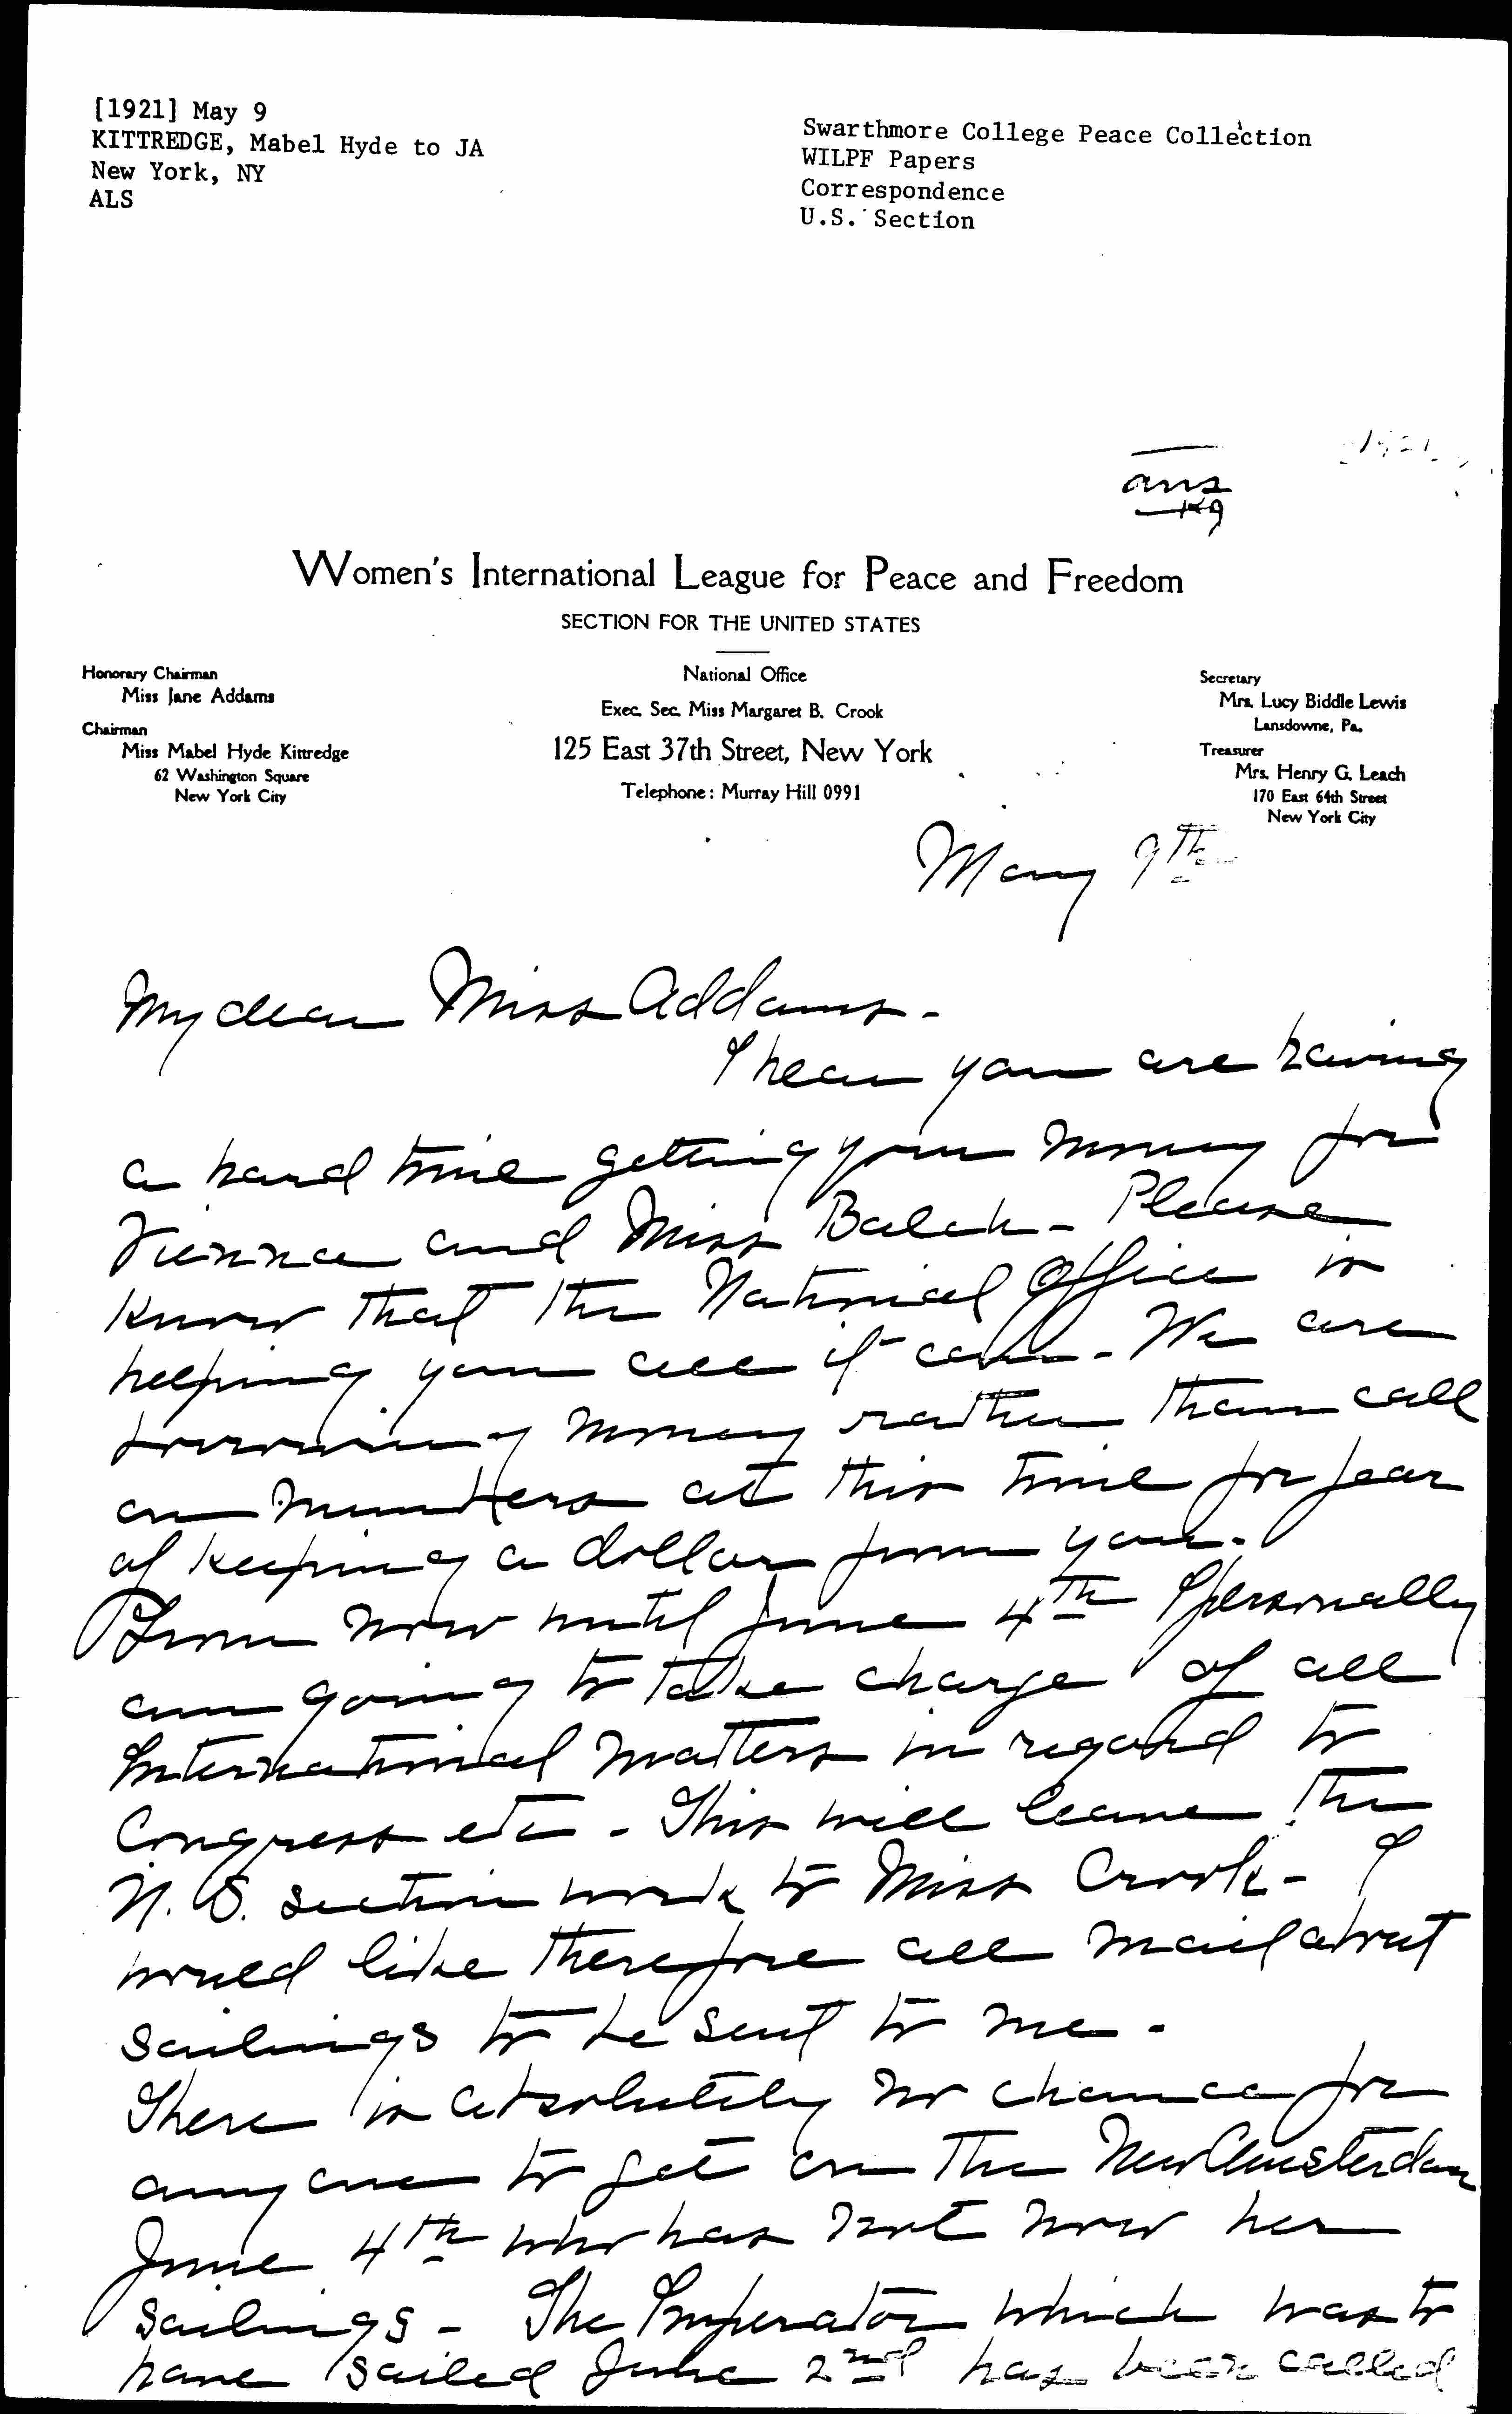 [1921] May 9
KITTREDGE, Mabel Hyde to JA
New York, NY
ALS
Swarthmore College Peace Collection
WILPF Papers
Correspondence
U.S. Section
ans
Women's International League for Peace and Freedom
SECTION FOR THE UNITED STATES
Honorary Chairman
Miss Jane Addams
Chairman
Miss Mabel Hyde Kittredge
62 Washington Square
New York City
National Office
Exec. Sec. Miss Margaret B. Crook
125 East 37th Street, New York
Telephone: Murray Hill 0991
Secretary
Mrs. Lucy Biddle Lewis
Lansdowne, Pa.
Treasurer
Mrs. Henry G. Leach
170 East 64th Street
New York City
May 9th
My dear Miss Addams-
I hear you are having
a hard time getting your money for
Vienna and Miss Balch- Please
know that the National Office is
helping you all it can- We are
borrowing money rather than call
on members at this time for fear
of keeping a dollar from you.
From now until June 4th I personally
am going to take charge of all
International matters in regard to
Congress etc- This will leave the
U.S. section work to Miss Crook- I
would like therefore all mail about
sailings to be sent to me-
There is absolutely no chance for
any one to get on the New Amsterdam
June 4th who has not now her
sailings- The Imperator which was to
have sailed June 2nd has been called